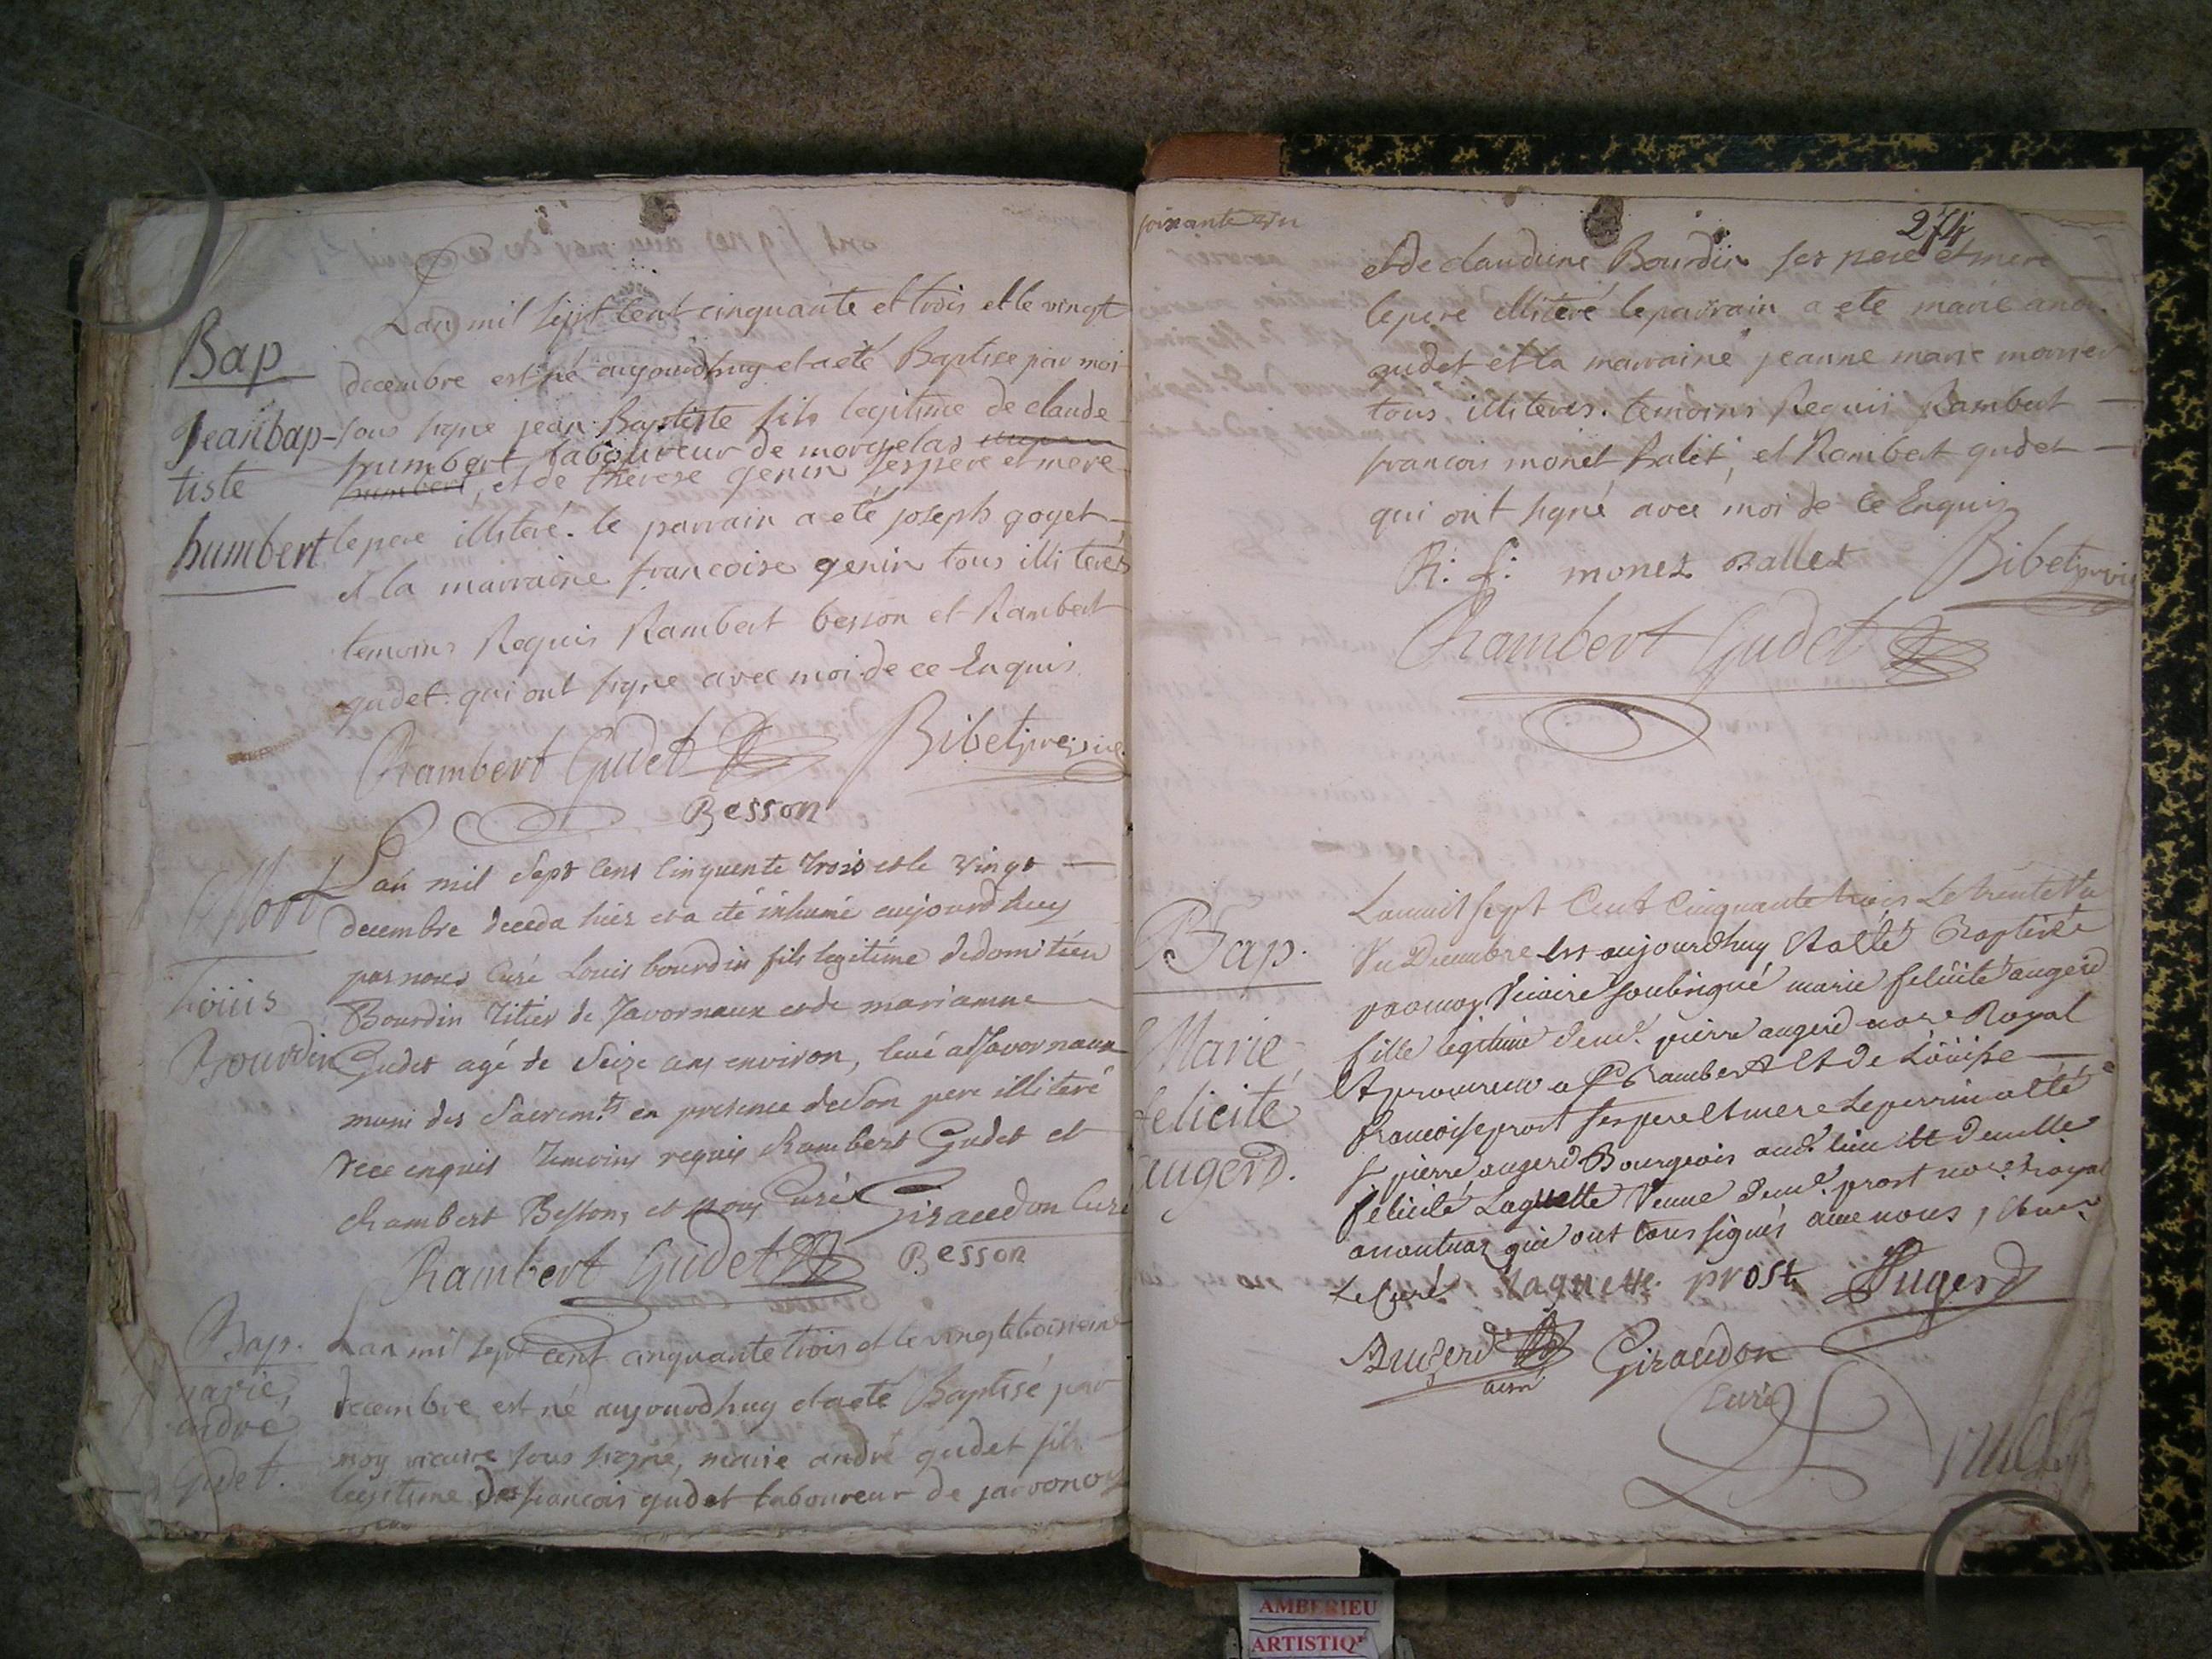 Bap
Jean bap-
tiste
humbert
Lan mil sept cent cinquante et trois et le vingt
decembre est né aujourdhuy et a eté Baptisé par moi
sous signé jean Baptiste fils legitime de claude
humbert, laboureur de morgelas
humbert, et de therese genin ses pere et mere
le pere illiteré. le parrain a eté joseph goyet
et la marraine francoise genin tous illiterés
temoins Requis Rambert besson et Rambert
gudet qui ont signé avec moi de ce Enquis
Rambert Gudet
Bibet
Besson
Mort
Loüis
Bourdin
Lan mil Sept Cens Cinquente trois et le vingt
decembre deceda hier et a eté inhumé aujourdhuy
par nous Curé Louis bourdin fils legitime de domitien
Bourdin titier de Javornaux et de mariamne
Gudet agé de Seize ans environ, levé a Javornaux
muni des Sacremts en presence de Son pere illiteré
de ce enquis temoins requis Rambert Gudet et
Rambert Besson, et nous Curé
Giraudon Curé
Rambert Gudet
Besson
Bap.
marie
andré
Gudet.
Lan mil sept cent cinquante trois et le vingt troisieme
decembre est né aujourdhuy et a eté Baptisé par
moy vicaire sous signé, marie andré gudet fils
legitime de francois gudet laboureur de
soixante un
274
et de claudine Bourdin ses pere et mere
le pere illiteré le parrain a ete marie andré
gudet et la marraine jeanne marie
tous illiterés. temoins Requis Rambert
francois monet Balet, et Rambert gudet
qui ont signé avec moi de ce Enquis
R. f. monet Ballet
Bibet
Rambert Gudet
Bap.
Marie
felicité
augerd.
Lan mil sept Cent Cinquante trois Le trente
Un Decembre est aujourdhuy Et a eté Baptisée
par moy Vicaire soubsigné marie felicité augerd
fille legitime de md. pierre augerd nore Royal
Et procureur a St Rambert Et de Loüise
francoise prost ses pere Et mere Le parrin a eté
sr pierre augerd Bourgeois audt lieu Et demlle
felicité Laguette Veuve de md. prost nore Royal
a nantuaz qui ont tous signés avec nous,
Le Curé Laguette prost Augerd
Augerd
ainé
Giraudon
Curé